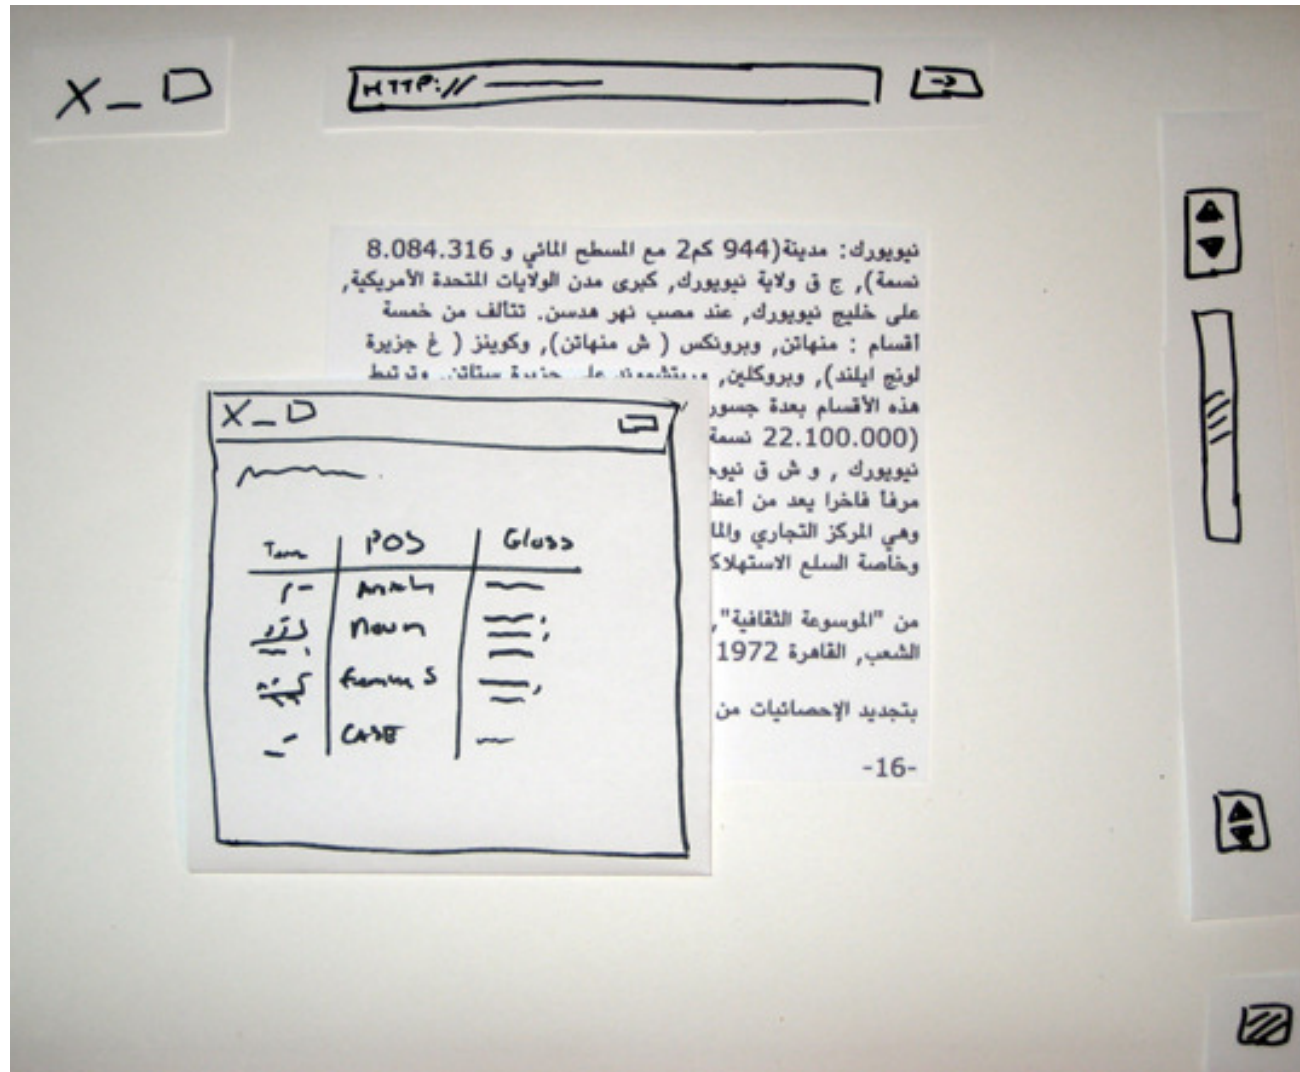 X _
HTTP://
نيويورك: مدينة(944 كم2 مع المسطح المائي و 8.084.316
نسمة), ج ق ولاية نيويورك, كبرى مدن الولايات المتحدة الأمريكية,
على خليج نيويورك, عند مصب نهر هدسن. تتألف من خمسة
أقسام : منهاتن, وبرونكس ( ش منهاتن), وكوينز ( غ جزيرة
لونج ايلند), وبروكلين, وريتشموند على جزيرة ستاتن. وترتبط
هذه الأقسام بعدة جسور
(22.100.000 نسمة
نيويورك , و ش ق
مرفأ فاخرا يعد من
وهي المركز التجاري
وخاصة السلع
من "الموسوعة الثقافية",
الشعب, القاهرة 1972
بتجديد الإحصائيات من
-16-
X _
POS Gloss
Noun
CASE